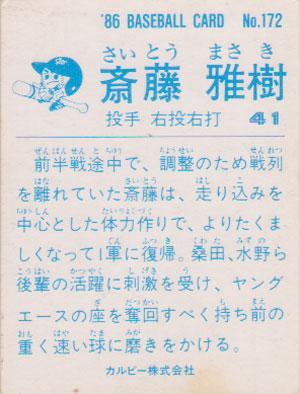 '86 BASEBALL CARD No.172
さいとう まさき
斎藤 雅樹
投手 右投右打 41
前半戦途中で、調整のため戦列
を離れていた斎藤は、走り込みを
中心とした体力作りで、よりたくま
しくなって1軍に復帰。桑田、水野ら
後輩の活躍に刺激を受け、ヤング
エースの座を奪回すべく持ち前の
重く速い球に磨きをかける。
カルビー株式会社